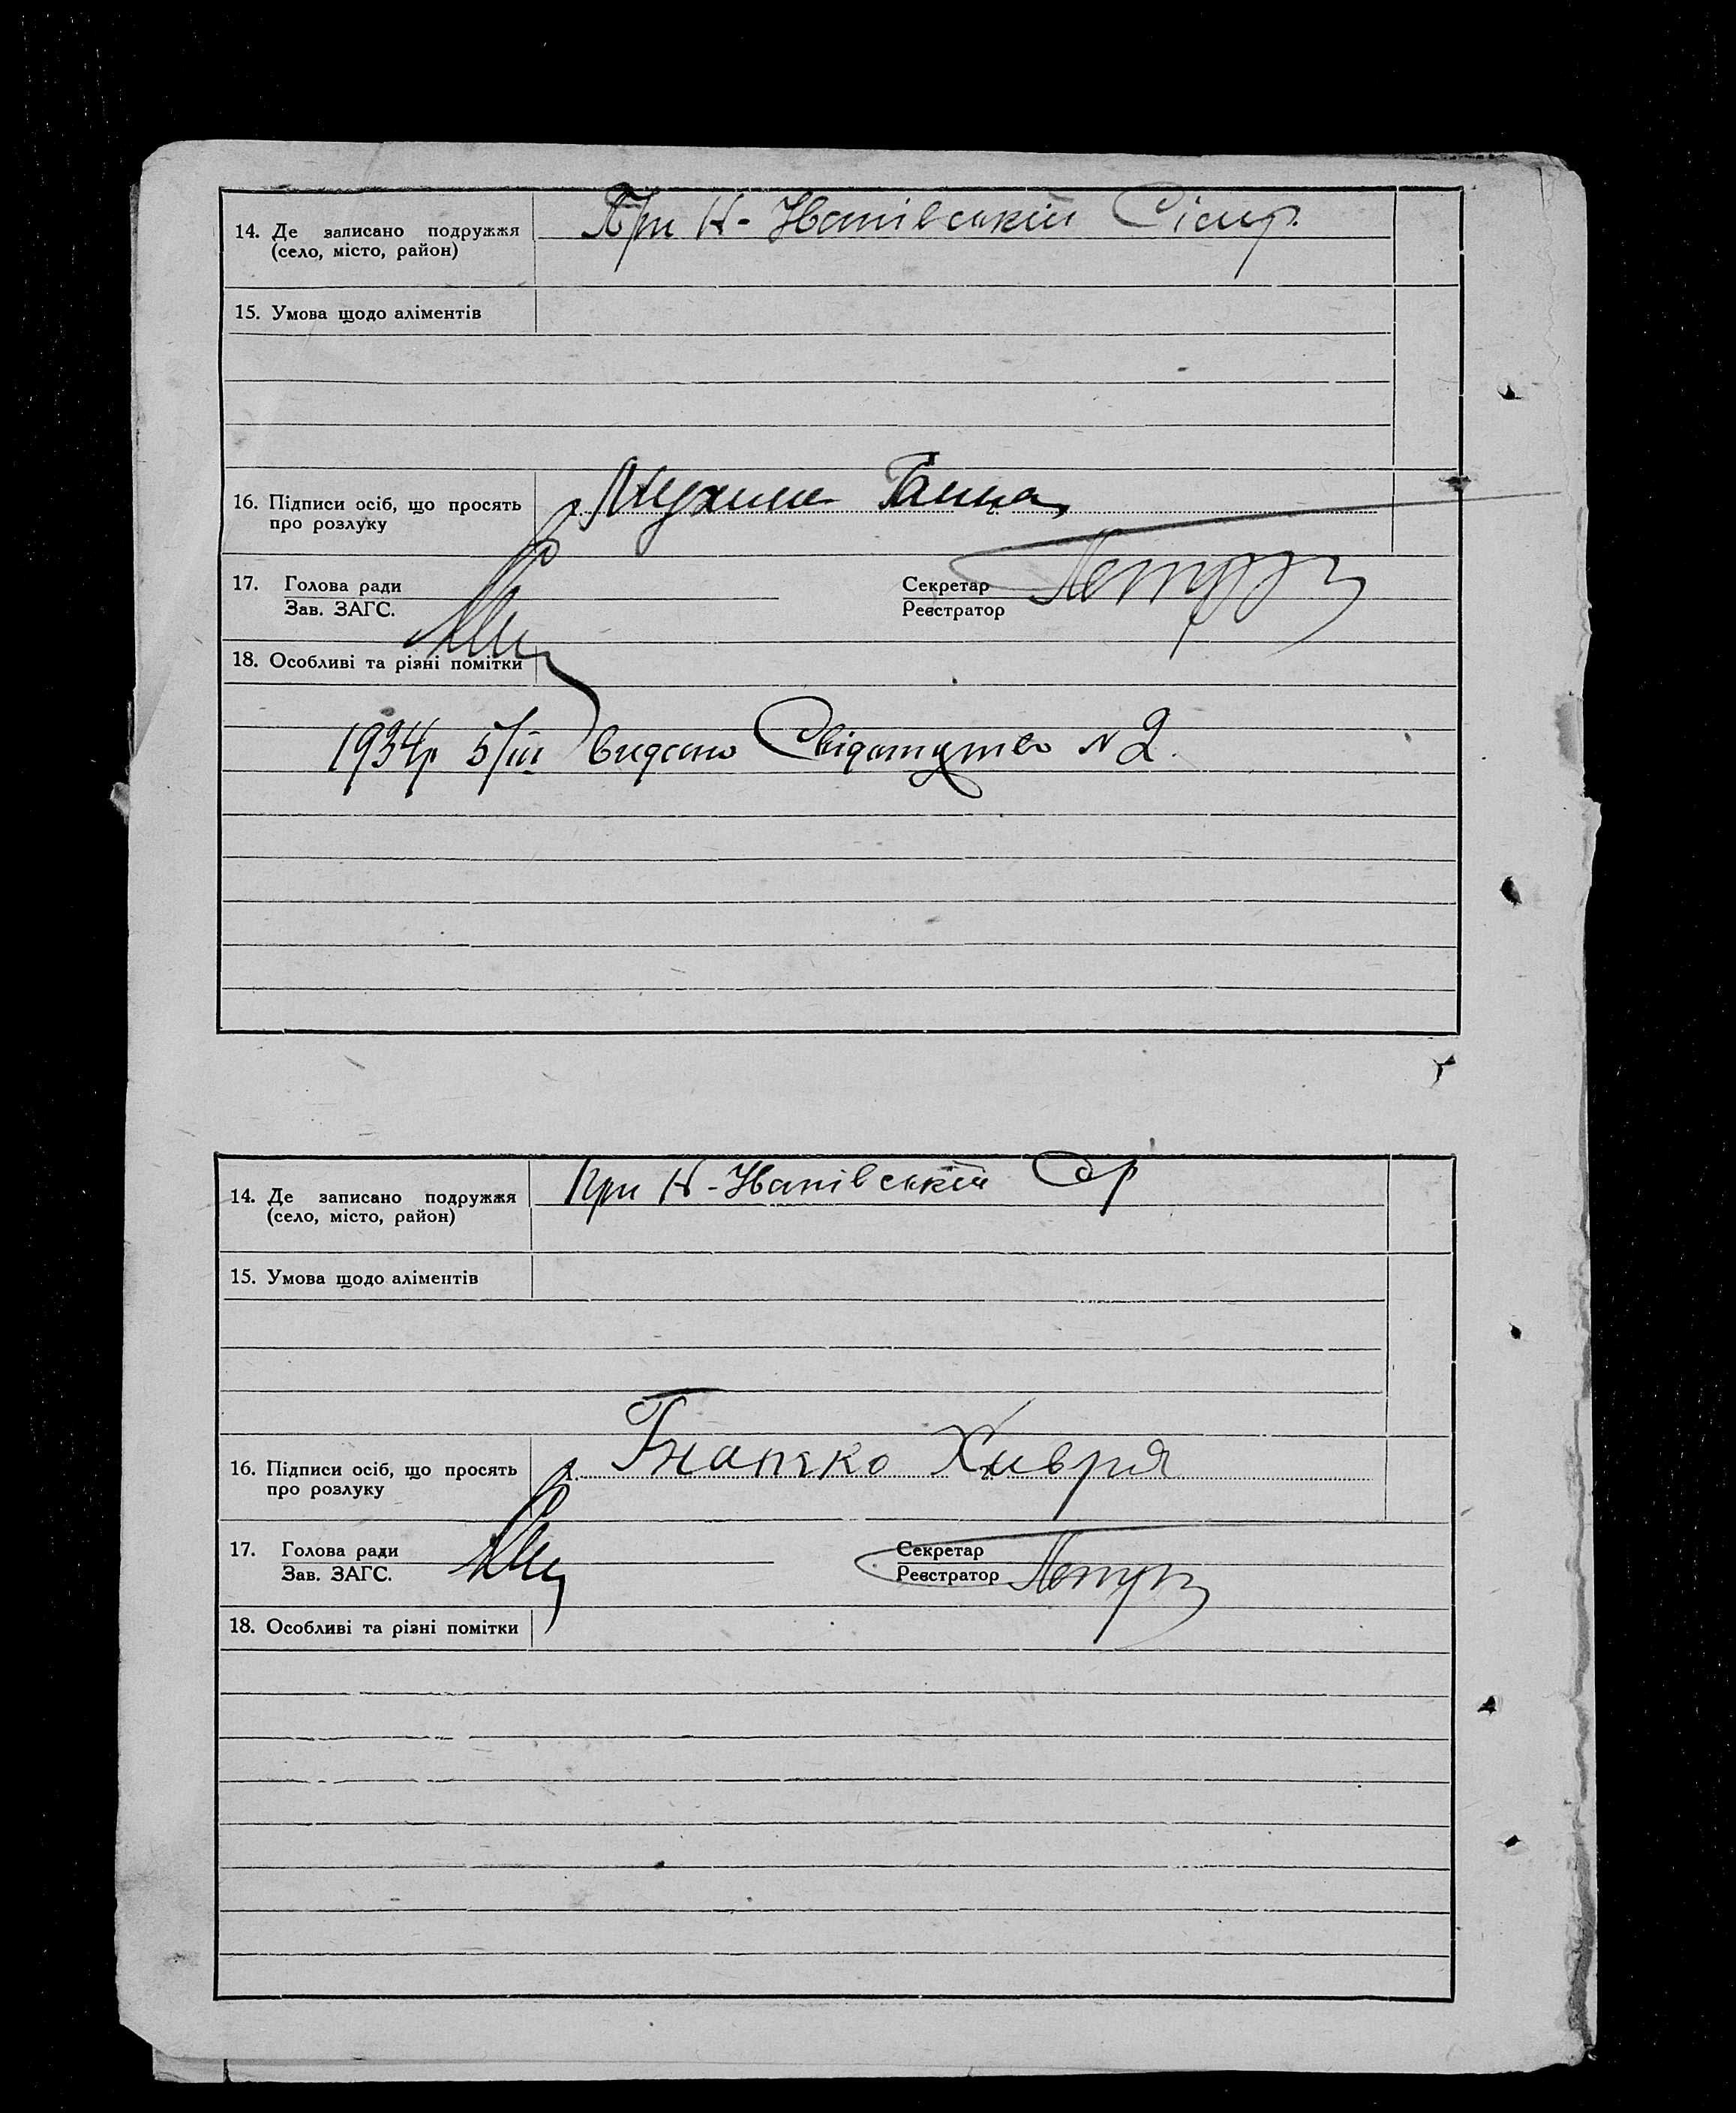 14. Де записано подружжя
(село, місто, район)
При Н-Іванівській Сільр.
15. Умова щодо аліментів
16. Підписи осіб, що просять
про розлуку
Ганна
17. Голова ради
Зав. ЗАГС.
Секретар
Реєстратор
18. Особливі та різні помітки
1934р 5/III видано Свідотцтво № 2.
14. Де записано подружжя
(село, місто, район)
При Н-Іванівській С/р
15. Умова щодо аліментів
16. Підписи осіб, що просять
про розлуку
Гнатко Хивря
17. Голова ради
Зав. ЗАГС.
Секретар
Реєстратор
18. Особливі та різні помітки